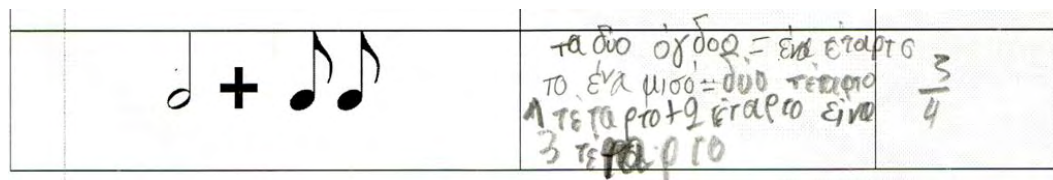 +
τα δυο όγδοα = ένα έταρτο
το ένα μισό = δυό τέταρτο
1 τέταρτο + 2 έταρτο είνα
3 τέταρτο
3
4